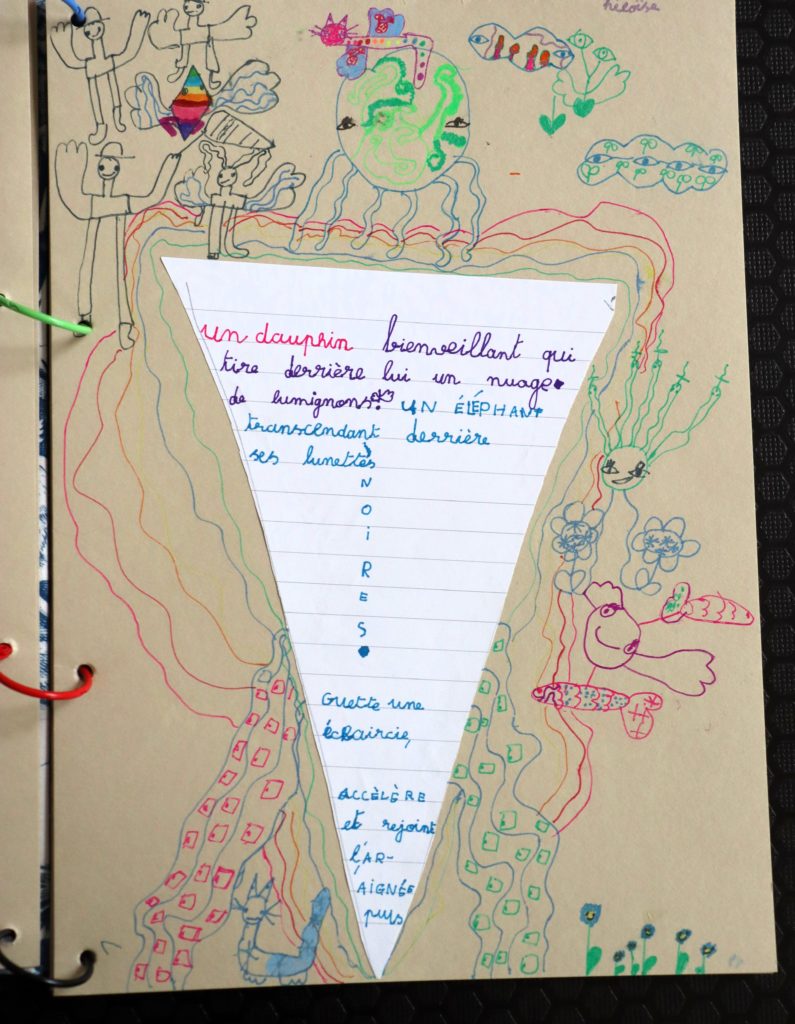 héloïse
un dauphin bienveillant qui
tire derrière lui un nuage
de lumignons. UN ÉLÉPHANT
transcendant derrière
ses lunettes
N
O
I
R
E
S
.
Guette une
éclaircie,
ACCÈLÈRE
et rejoint
l'AR-
AIGNÉE
puis